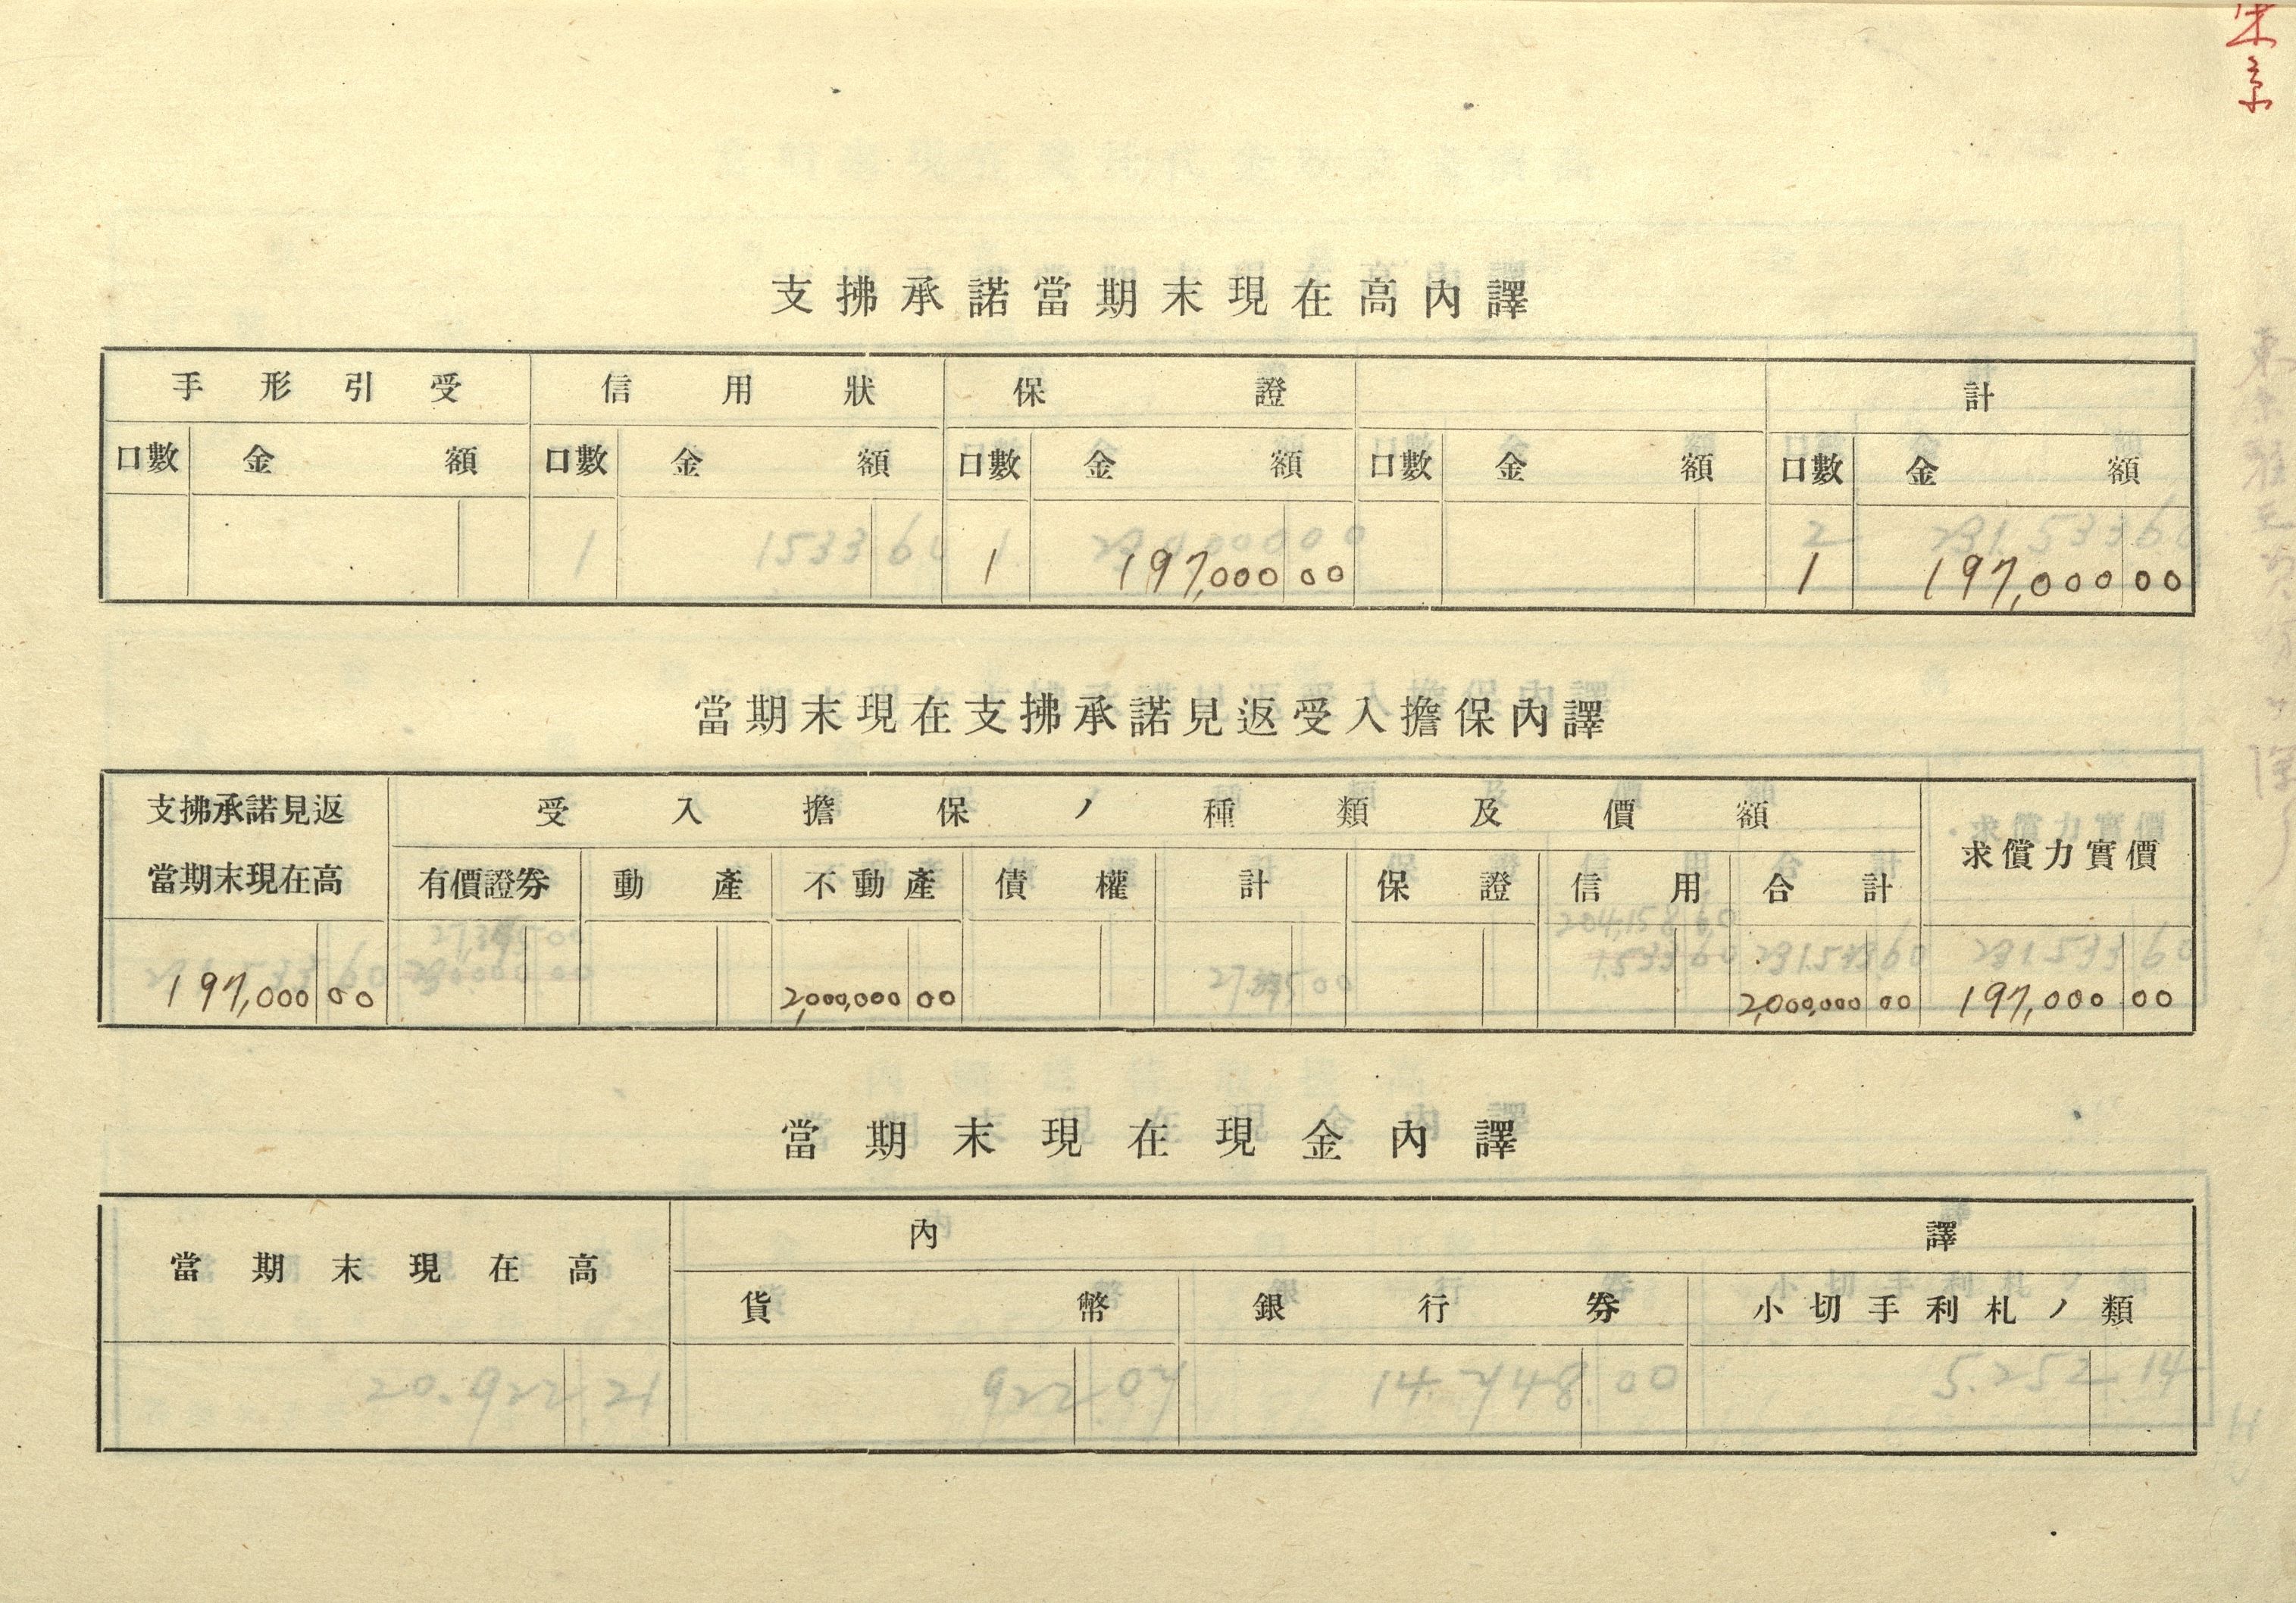 東京
支拂承諾當期末現在高內譯
手形引受 信用狀 保證 計
口數 金額 口數 金額 口數 金額 口數 金額 口數 金額
1 197,000 00 1 197,000 00
當期末現在支拂承諾見返受入擔保內譯
支拂承諾見返 受入擔保ノ種類及價額 求償力實價
當期末現在高 有價證券 動產 不動產 債權 計 保證 信用 合計
197,000 00 2,000,000 00 2,000,000 00 197,000 00
當期末現在現金內譯
當期末現在高 內譯
貨幣 銀行券 小切手利札ノ類